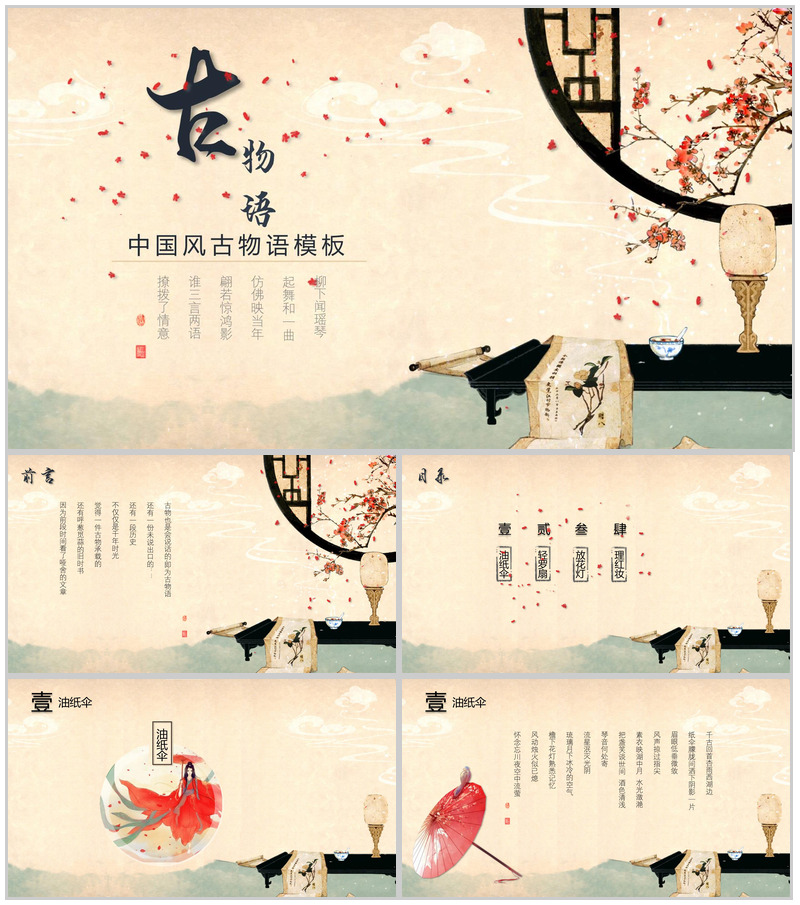 古
物
语
中国风古物语模板
柳下闻瑶琴
起舞和一曲
仿佛映当年
翩若惊鸿影
谁三言两语
撩拨了情意
前言
古物也是会说话的即为古物语
还有一份未说出口的
还有一段历史
不仅仅是千年时光
觉得一件古物承载的
还有呼葱觅蒜的旧时书
因为前段时间看了喑舍的文章
目录
壹
油纸伞
贰
轻罗扇
叁
放花灯
肆
理红妆
壹 油纸伞
油纸伞
壹 油纸伞
千古回首杏雨西湖边
纸伞朦胧间洒下阴影一片
眉眼低垂微敛
风声掠过指尖
素衣映湖中月 水光潋滟
把盏笑谈世间 酒色清浅
琴音何处寄
流星泯灭光阴
琉璃月下冰冷的空气
檐下花灯熟悉记忆
风动烛火似已熄
怀念忘川夜空中流萤